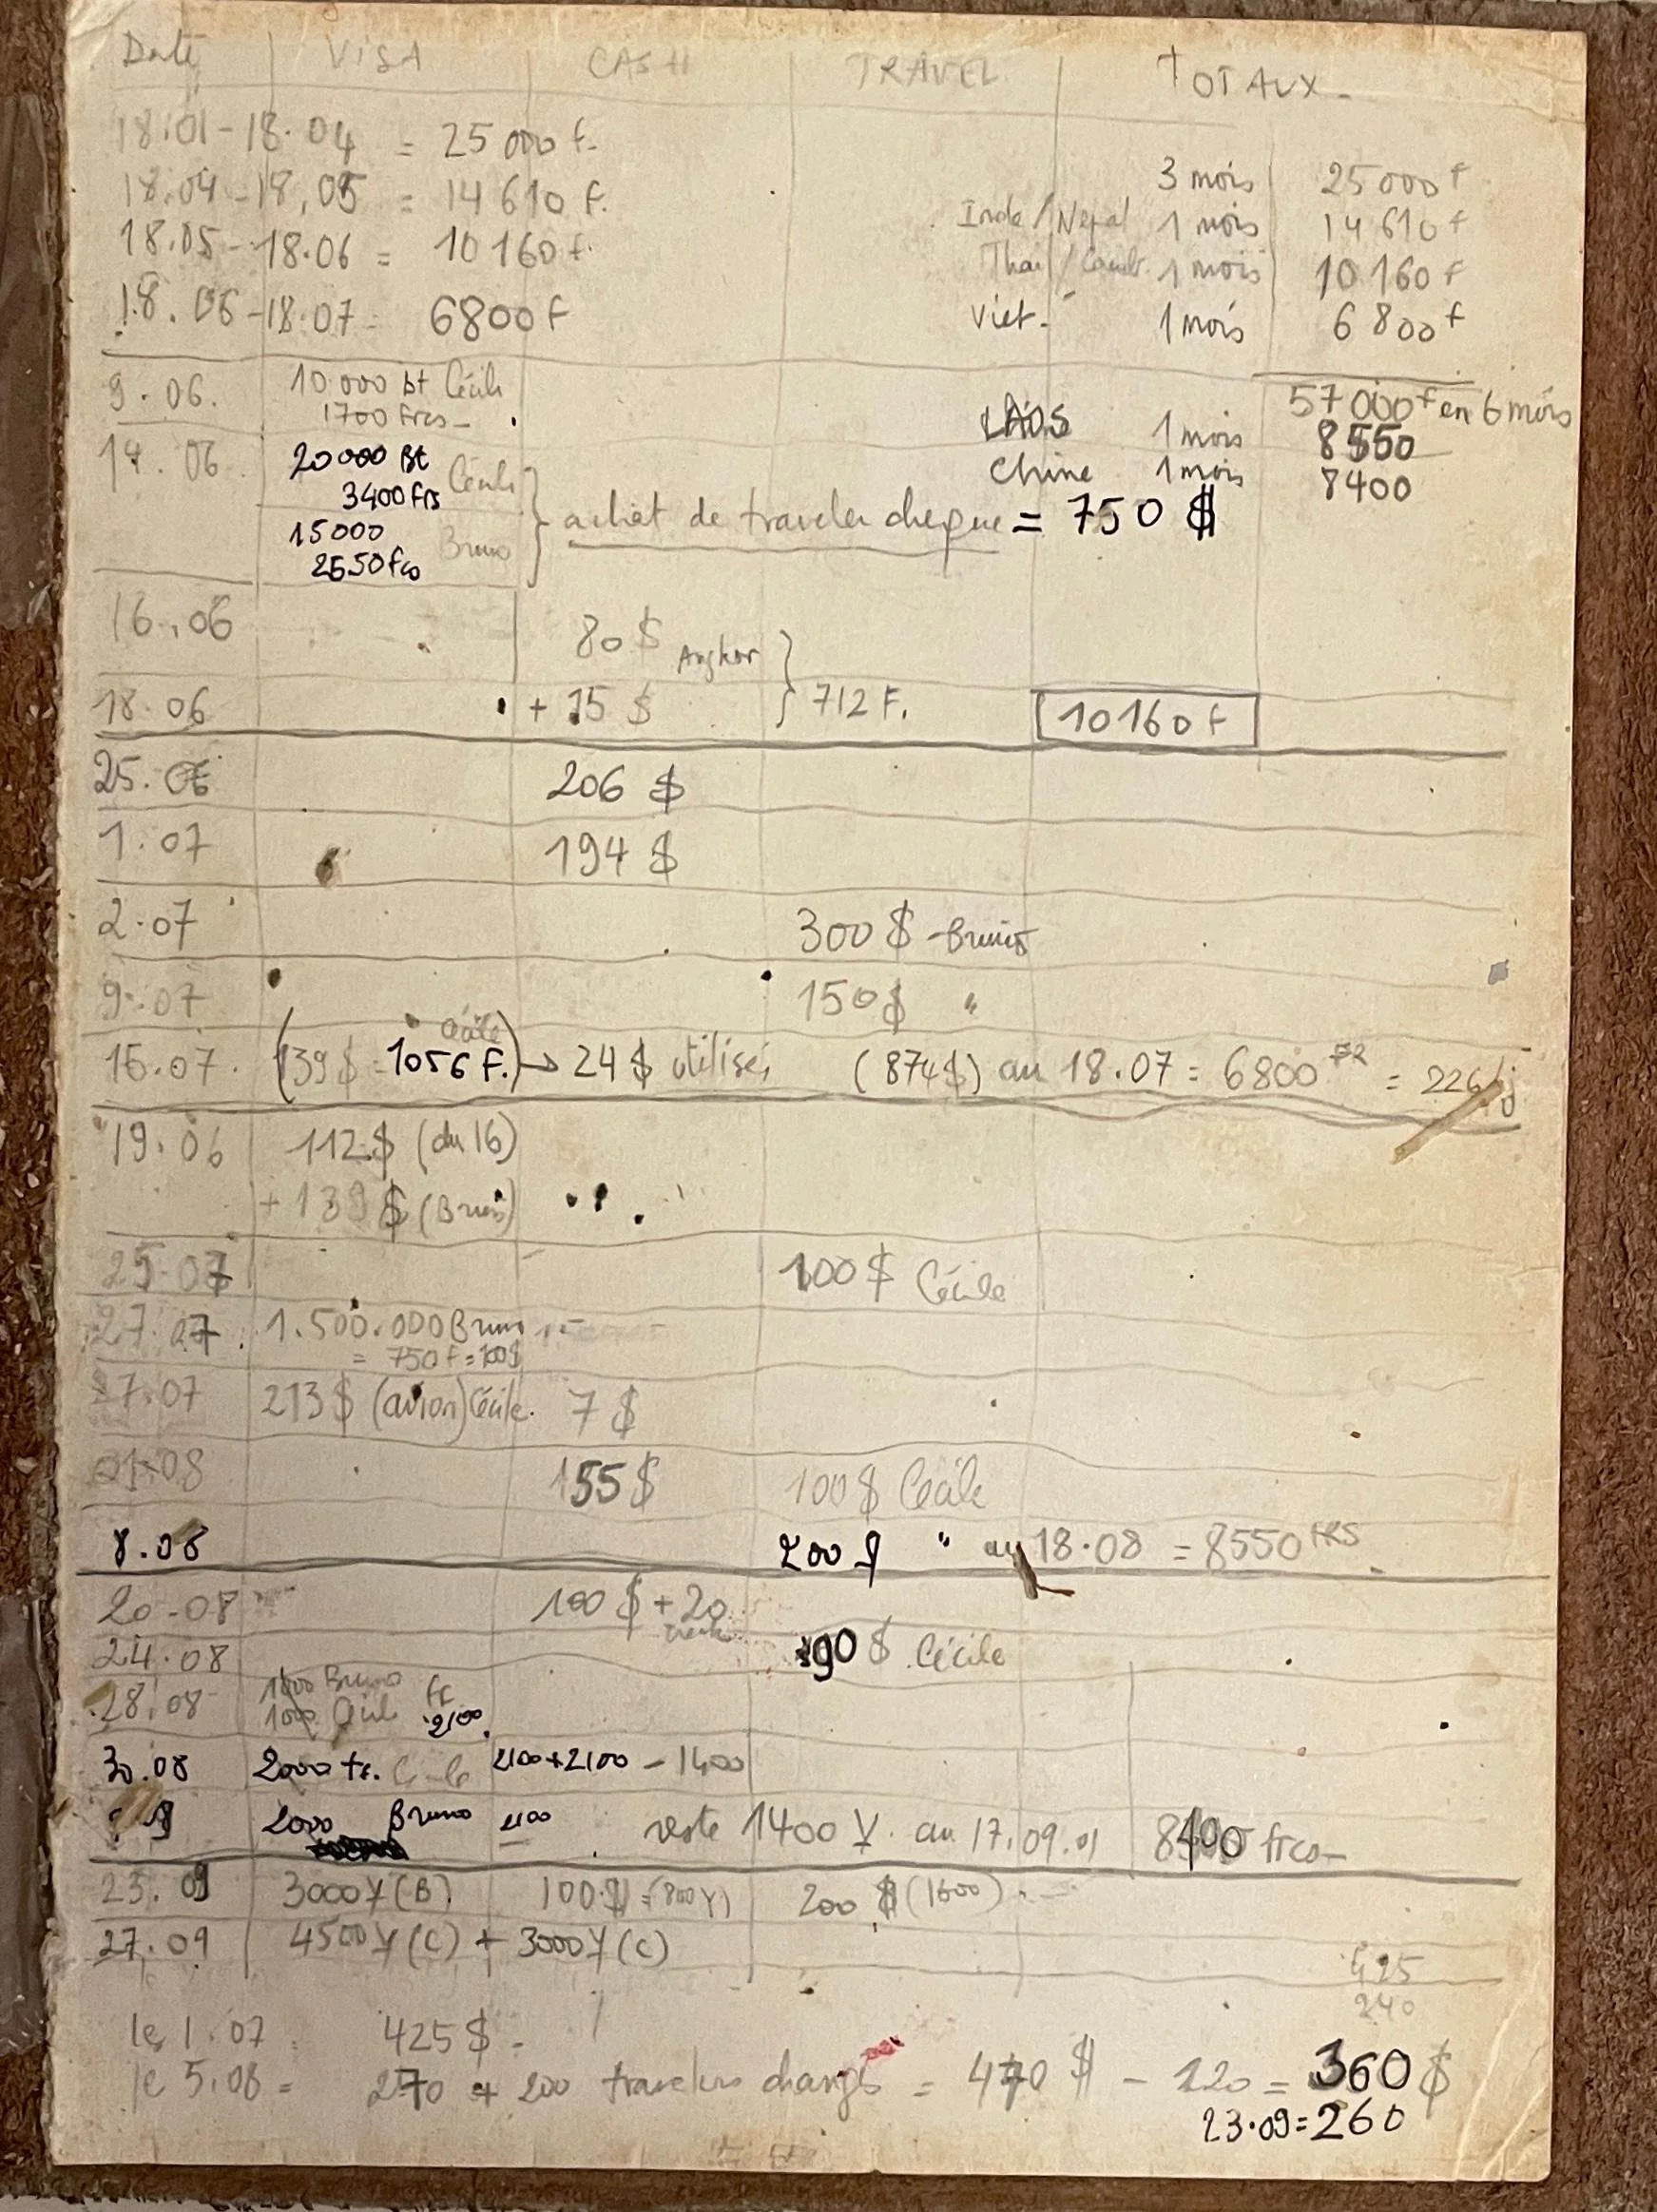 Date VISA CASH TRAVEL TOTAUX
18.01-18.04 = 25 000 f.
18.04-18.05 = 14 610 F.
18.05-18.06 = 10 160 f.
18.06-18.07 = 6800 f
3 mois 25 000 f
Inde/Nepal 1 mois 14 610 f
Thaï/Camb. 1 mois 10 160 f
Viet. 1 mois 6 800 f
57 000 f en 6 mois
LAOS 1 mois 8550
Chine 1 mois 8400
9.06. 10 000 bt Cécile
1700 Frcs
14.06 20 000 Bt Cécile
3400 frs
15 000 Bruno
2550 fcs
achat de traveler cheque = 750 $
16.06 80 $ Angkor
18.06 + 15 $ 712 F. 10160 F
25.06 206 $
1.07 194 $
2.07 300 $ Bruno
9.07 150 $ "
16.07. (139 $ = 1056 F. Cécile) → 24 $ utilisés (874 $) au 18.07 = 6800 FR = 226/j
19.06 112 $ (du 16)
+ 139 $ (Bruno)
25.07 100 $ Cécile
27.07 1.500.000 Bruno
= 750 f = 100 $
27.07 213 $ (avion) Cécile. 7 $
01.08 155 $ 100 $ Cécile
8.08 200 $ " au 18.08 = 8550 FRS
20-08 100 $ + 20
24.08 90 $ Cécile
28.08 1000 Bruno
1000 Cécile 2100
30.08 2000 fr. Cécile 2100+2100 - 1400
2000 Bruno 2100 reste 1400 Y. au 17.09.01 8400 frcs
23.09 3000 Y (B) 100 $ = (800 Y) 200 $ (1600)
27.09 4500 Y (C) + 3000 Y (C)
425
240
le 1.07 = 425 $
le 5.08 = 270 + 200 travelers changés = 470 $ - 120 = 360 $
23.09 = 260